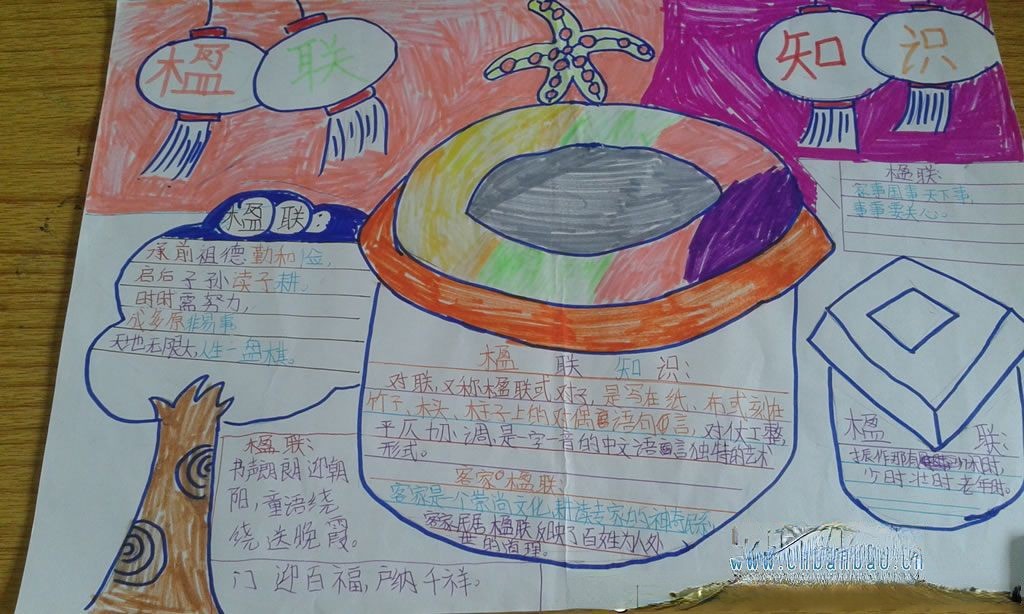 楹联
知识
楹联:
承前祖德勤和俭,
启后子孙读子耕。
时时需努力,
原非易事
天地无限大人生一盘棋。
楹联:
家事国事天下事,
事事要关心。
楹 联 知 识:
对联,又称楹联或对子,是写在纸、布或刻在
竹子、木头、柱子上的对偶语句言,对仗工整,
平仄 切 调,是一字一音的中文语言独特的艺术
形式。
客家楹联
客家是一个崇尚文化
客家 楹联反映了百姓为人处
世的道理。
楹联:
书声朗朗迎朝
阳,童语绕
绕送晚霞。
门迎百福,户纳千祥。
楹 联:
振作那有 休时,
少时壮时老年时。